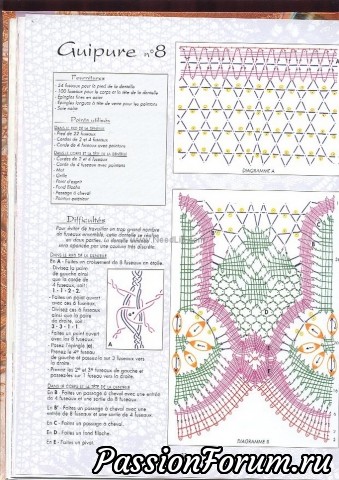 Guipure n°8
Fournitures
- 54 fuseaux pour le pied de la dentelle
- 100 fuseaux pour le corps et la tête de la dentelle
- Épingles fines en acier
- Épingles longues à tête de verre pour les pointons
- Soie noire
Points utilisés
DANS LE PIED DE LA DENTELLE
- Pied de 22 fuseaux
- Cordes de 2 et 4 fuseaux
- Corde de 4 fuseaux avec pointons
DANS LE CORPS ET LA TÊTE DE LA DENTELLE
- Cordes de 2 et 4 fuseaux
- Corde de 4 fuseaux avec pointons
- Mat
- Grille
- Point d'esprit
- Fond filoche
- Passage à cheval
Difficultés
Pour éviter de travailler un trop grand nombre
de fuseaux ensemble, cette dentelle se réalise
en deux parties. La dentelle terminée
sera agencée par une couture très discrète.
DANS LE PIED DE LA DENTELLE
En A - Faites un croisement de 8 fuseaux en étoile.
- Divisez la paire
de gauche ainsi
que la corde de
4 fuseaux, soit :
1 - 1 - 2 - 2.
- Faites un point ouvert
avec ces 6 fuseaux.
- Divisez ces 6 fuseaux
ainsi que la paire
de droite, soit :
3 - 3 - 1 - 1
- Faites un point ouvert
avec les 8 fuseaux.
- Posez l'épingle (e).
- Prenez le 4e fuseau
de gauche et passez-le sur 3 fuseaux vers
la droite.
- Prenez les 2e et 3e fuseaux de gauche et
passez-les sur 1 fuseau vers la droite.
DANS LE CORPS ET LA TÊTE DE LA DENTELLE
En B - Faites un passage à cheval avec une entrée
de 4 fuseaux et une sortie de 8 fuseaux.
En B' - Faites un passage à cheval avec une
entrée de 8 fuseaux et une sortie de 4 fuseaux.
En C - Faites un passage à cheval.
En D - Faites un fond filoche.
En E - Faites un pivot.
A
e
DIAGRAMME A
DIAGRAMME B
PassionForum.ru